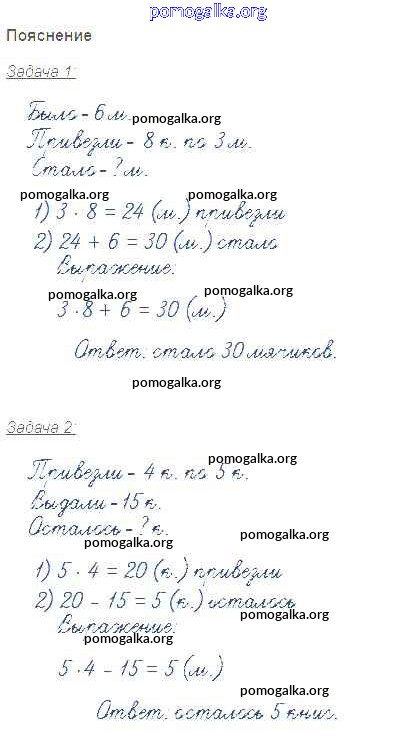 pomogalka.org
Пояснение
Задача 1:
Было - 6 м. pomogalka.org
Привезли - 8 к. по 3 м.
Стало - ? м.
pomogalka.org pomogalka.org
1) 3 · 8 = 24 (м.) привезли
2) 24 + 6 = 30 (м.) стало
Выражение:
pomogalka.org pomogalka.org
3 · 8 + 6 = 30 (м.)
Ответ: стало 30 мячиков.
pomogalka.org
Задача 2:
pomogalka.org
Привезли - 4 к. по 5 к.
Выдали - 15 к.
Осталось - ? к.
pomogalka.org pomogalka.org
1) 5 · 4 = 20 (к.) привезли
2) 20 - 15 = 5 (к.) осталось
pomogalka.org
Выражение:
pomogalka.org
5 · 4 - 15 = 5 (м.)
pomogalka.org
Ответ: осталось 5 книг.